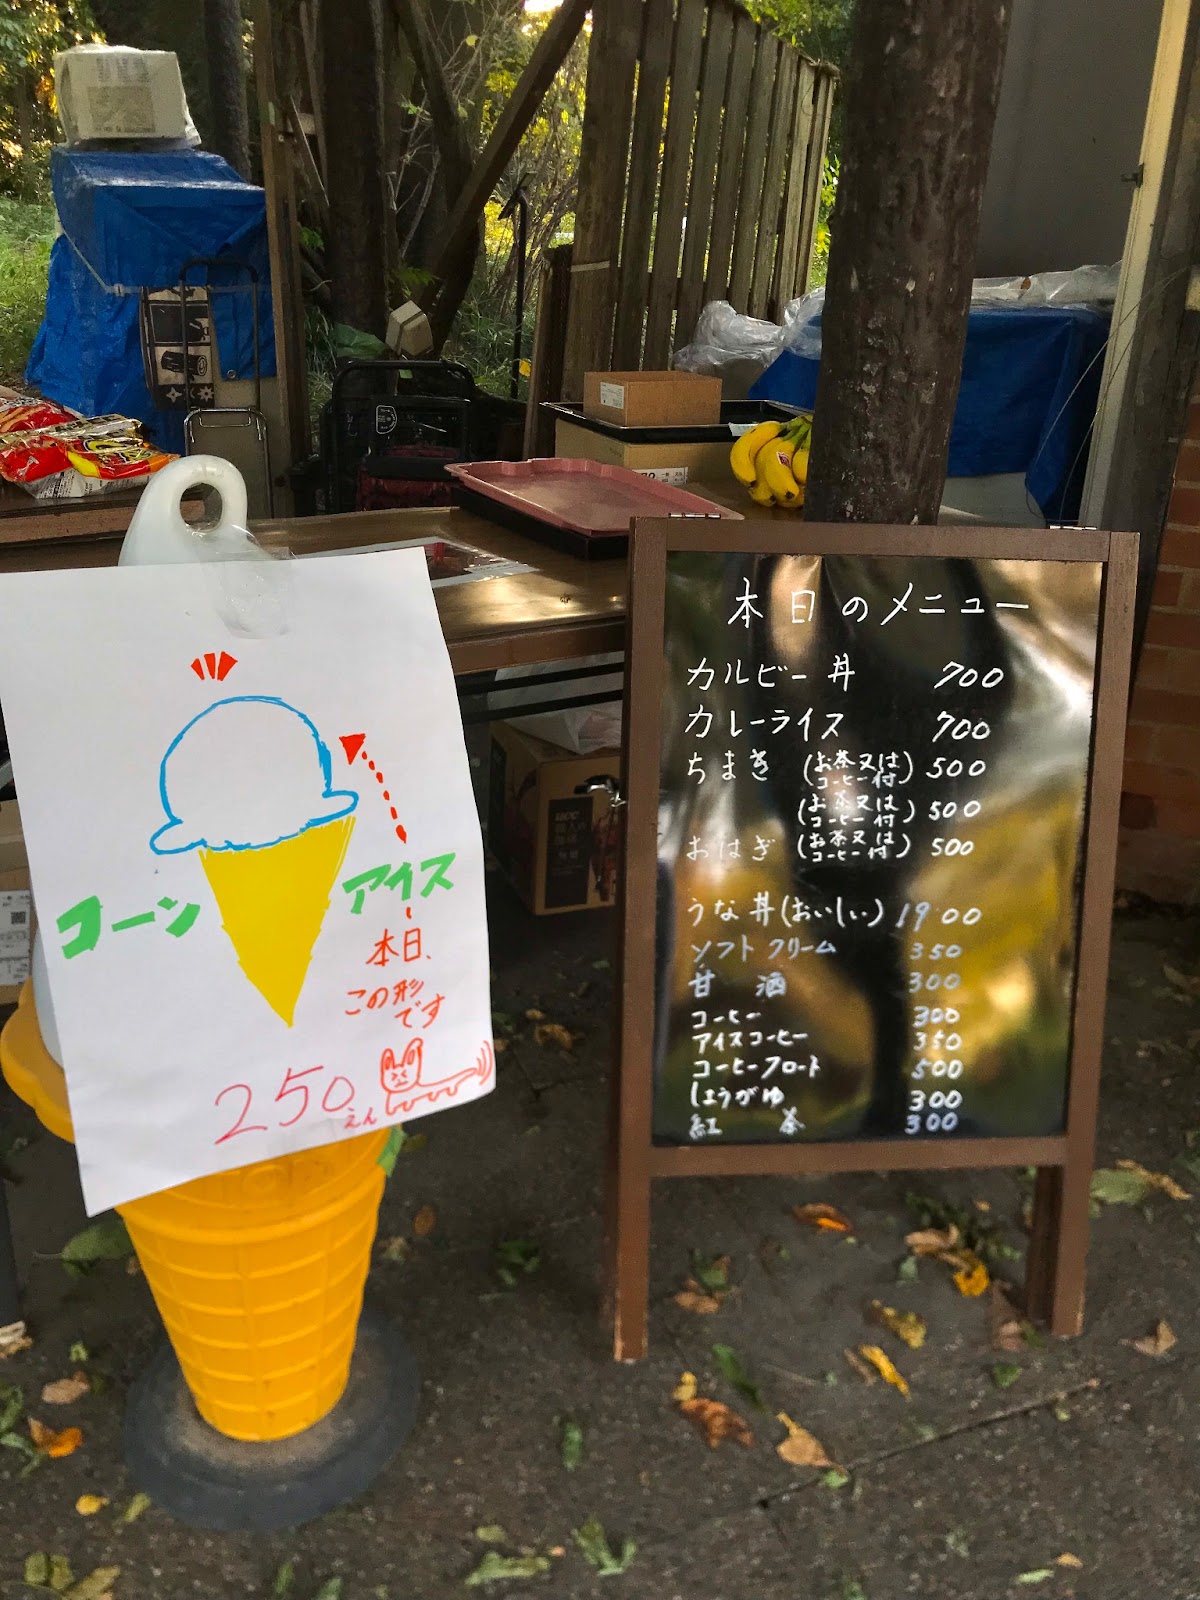 コーン
アイス
本日、
この形
です
250えん
本日のメニュー
カルビー丼 700
カレーライス 700
ちまき (お茶又はコーヒー付) 500
(お茶又はコーヒー付) 500
おはぎ (お茶又はコーヒー付) 500
うな丼(おいしい) 1900
ソフトクリーム 350
甘酒 300
コーヒー 300
アイスコーヒー 350
コーヒーフロート 500
しょうがゆ 300
紅茶 300
ucc